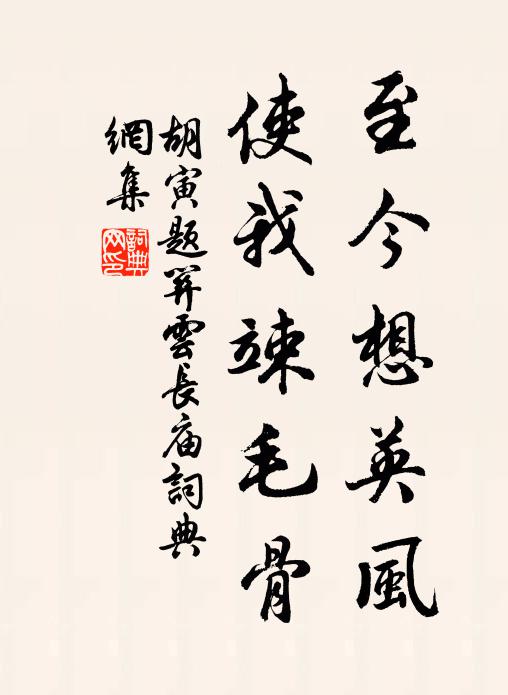 至今想英風
使我竦毛骨
胡寅題關雲長庙詞典
網集
詞典
网印